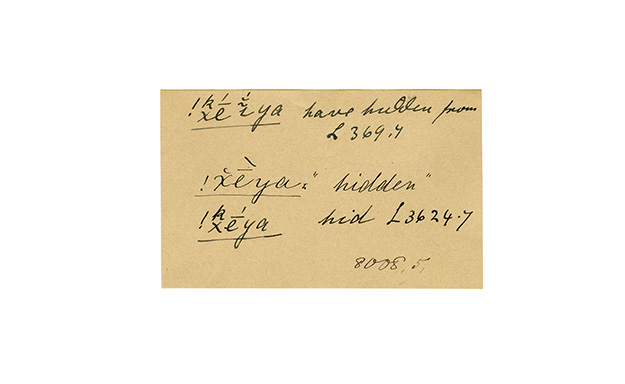 !k͓x̱é̄ ĭ́ya have hidden from
L 369.7
!x̌è̄ya = "hidden"
!k͓x̱é̄ya hid L 3624.7
8008.5.